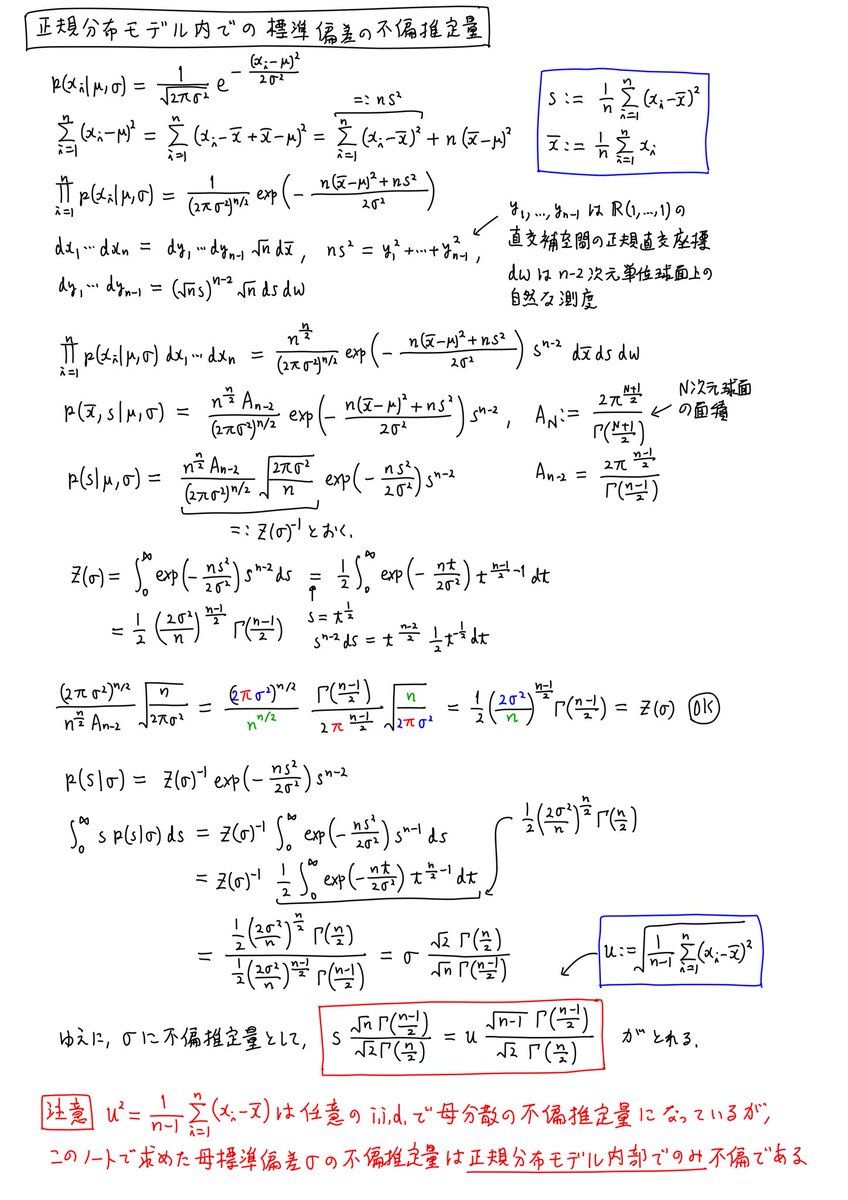 正規分布モデル内での標準偏差の不偏推定量
p(xᵢ|μ,σ) = 1/√(2πσ²) e^{-(xᵢ-μ)²/(2σ²)}
s := 1/n Σ_{i=1}^{n} (xᵢ-x̄)²
x̄ := 1/n Σ_{i=1}^{n} xᵢ
=: ns²
Σ_{i=1}^{n} (xᵢ-μ)² = Σ_{i=1}^{n} (xᵢ-x̄+x̄-μ)² = Σ_{i=1}^{n} (xᵢ-x̄)² + n(x̄-μ)²
Π_{i=1}^{n} p(xᵢ|μ,σ) = 1/(2πσ²)^{n/2} exp(- (n(x̄-μ)²+ns²)/(2σ²))
y₁,…,yₙ₋₁ は ℝ(1,…,1) の
直交補空間の正規直交座標
dx₁⋯dxₙ = dy₁⋯dyₙ₋₁ √n dx̄, ns² = y₁²+⋯+yₙ₋₁²,
dωはn-2次元単位球面上の
自然な測度
dy₁⋯dyₙ₋₁ = (√n s)^{n-2} √n ds dω
Π_{i=1}^{n} p(xᵢ|μ,σ) dx₁⋯dxₙ = n^{n/2}/(2πσ²)^{n/2} exp(- (n(x̄-μ)²+ns²)/(2σ²)) s^{n-2} dx̄ ds dω
p(x̄,s|μ,σ) = n^{n/2} A_{n-2}/(2πσ²)^{n/2} exp(- (n(x̄-μ)²+ns²)/(2σ²)) s^{n-2}, A_N := 2π^{(N+1)/2}/Γ((N+1)/2)
N次元球面
の面積
p(s|μ,σ) = n^{n/2} A_{n-2}/(2πσ²)^{n/2} √(2πσ²/n) exp(- ns²/(2σ²)) s^{n-2}
A_{n-2} = 2π^{(n-1)/2}/Γ((n-1)/2)
=: Z(σ)⁻¹ とおく.
Z(σ) = ∫₀^∞ exp(- ns²/(2σ²)) s^{n-2} ds = 1/2 ∫₀^∞ exp(- nt/(2σ²)) t^{(n-1)/2-1} dt
= 1/2 (2σ²/n)^{(n-1)/2} Γ((n-1)/2)
s = t^{1/2}
s^{n-2} ds = t^{(n-2)/2} 1/2 t^{-1/2} dt
(2πσ²)^{n/2}/(n^{n/2} A_{n-2}) √(n/(2πσ²)) = (2πσ²)^{n/2}/n^{n/2} Γ((n-1)/2)/(2π^{(n-1)/2}) √(n/(2πσ²)) = 1/2 (2σ²/n)^{(n-1)/2} Γ((n-1)/2) = Z(σ) OK
p(s|σ) = Z(σ)⁻¹ exp(- ns²/(2σ²)) s^{n-2}
∫₀^∞ s p(s|σ) ds = Z(σ)⁻¹ ∫₀^∞ exp(- ns²/(2σ²)) s^{n-1} ds
1/2 (2σ²/n)^{n/2} Γ(n/2)
= Z(σ)⁻¹ 1/2 ∫₀^∞ exp(- nt/(2σ²)) t^{n/2-1} dt
= (1/2 (2σ²/n)^{n/2} Γ(n/2))/(1/2 (2σ²/n)^{(n-1)/2} Γ((n-1)/2)) = σ √2 Γ(n/2)/(√n Γ((n-1)/2))
u := √(1/(n-1) Σ_{i=1}^{n} (xᵢ-x̄)²)
ゆえに, σに不偏推定量として, s √n Γ((n-1)/2)/(√2 Γ(n/2)) = u √(n-1) Γ((n-1)/2)/(√2 Γ(n/2)) がとれる.
注意 u² = 1/(n-1) Σ_{i=1}^{n} (xᵢ-x̄) は任意の i.i.d. で母分散の不偏推定量になっているが,
このノートで求めた母標準偏差σの不偏推定量は正規分布モデル内部でのみ不偏である